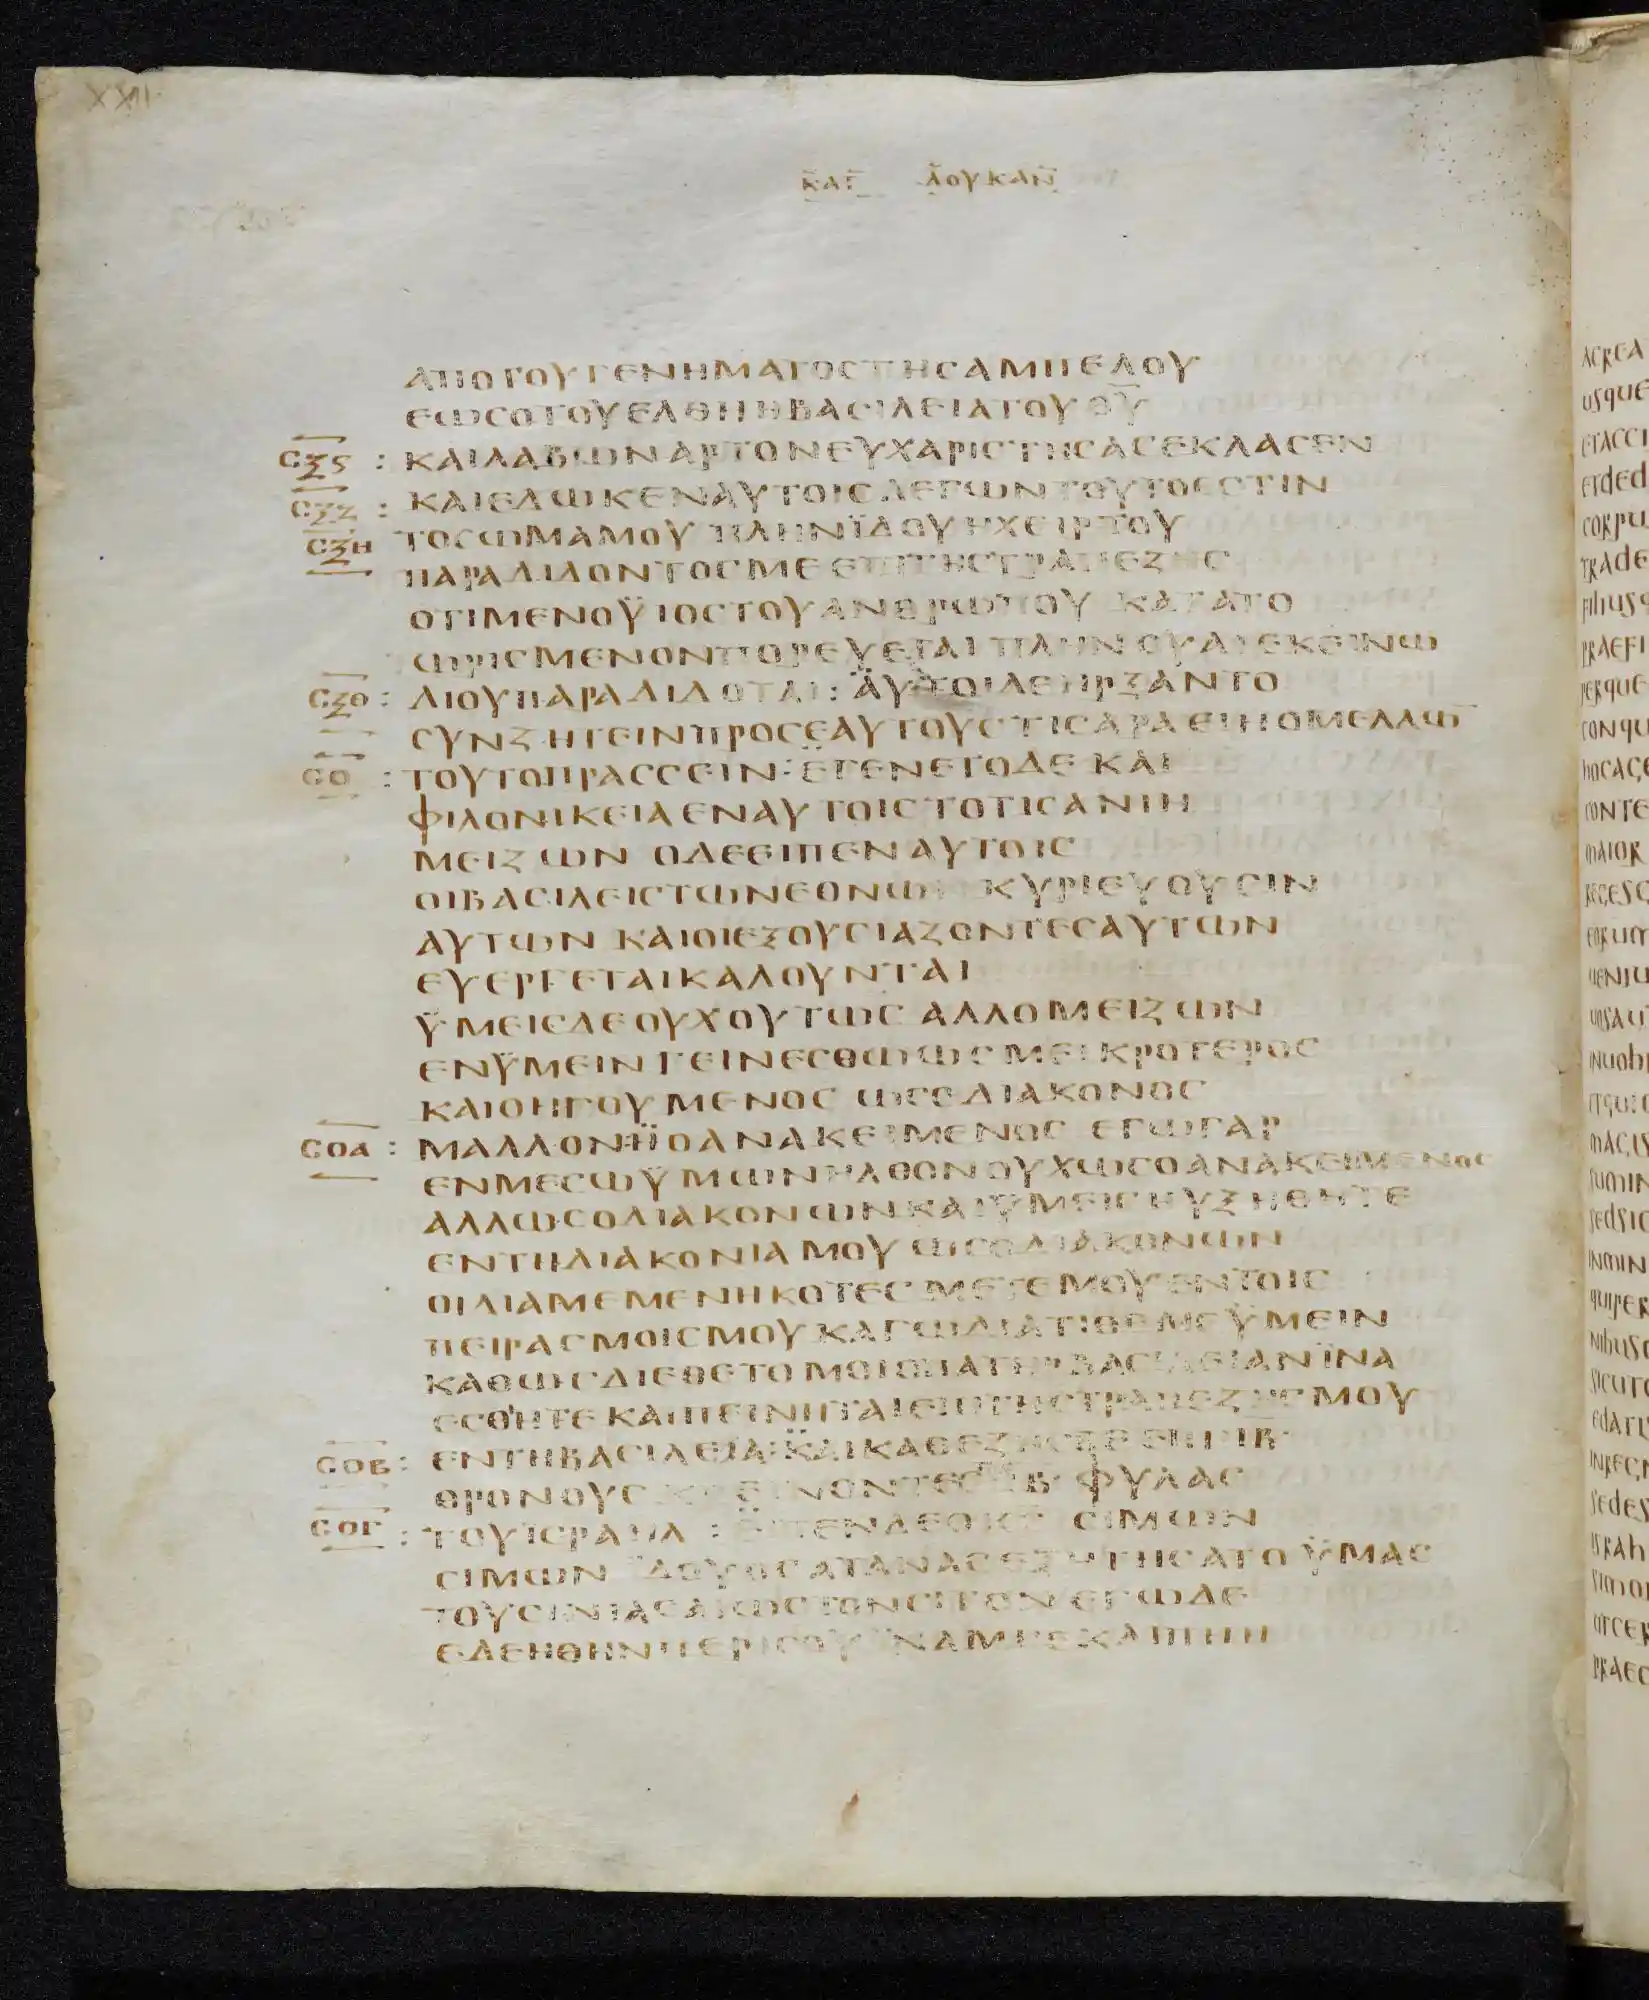 XXII
ΚΑΤ ΛΟΥΚΑΝ
ΑΠΟΤΟΥΓΕΝΗΜΑΤΟΣΤΗΣΑΜΠΕΛΟΥ
ΕΩΣΟΤΟΥΕΛΘΗΗΒΑΣΙΛΕΙΑΤΟΥΘΥ
CΞϚ : ΚΑΙΛΑΒΩΝΑΡΤΟΝΕΥΧΑΡΙΣΤΗΣΑΣΕΚΛΑΣΕΝ
CΞΖ : ΚΑΙΕΔΩΚΕΝΑΥΤΟΙΣΛΕΓΩΝΤΟΥΤΟΕΣΤΙΝ
CΞΗ ΤΟΣΩΜΑΜΟΥ ΠΛΗΝΪΔΟΥΗΧΕΙΡΤΟΥ
ΠΑΡΑΔΙΔΟΝΤΟΣΜΕΕΠΙΤΗΣΤΡΑΠΕΖΗΣ
ΟΤΙΜΕΝΟΫΙΟΣΤΟΥΑΝΘΡΩΠΟΥ ΚΑΤΑΤΟ
ΩΡΙΣΜΕΝΟΝΠΟΡΕΥΕΤΑΙ ΠΛΗΝΟΥΑΙΕΚΕΙΝΩ
CΞΘ : ΔΙΟΥΠΑΡΑΔΙΔΟΤΑΙ : ΑΥΤΟΙΔΕΗΡΞΑΝΤΟ
ΣΥΝΖΗΤΕΙΝΠΡΟΣΕΑΥΤΟΥΣΤΙΣΑΡΑΕΙΗΟΜΕΛΛΩ̅
CΟ : ΤΟΥΤΟΠΡΑΣΣΕΙΝ : ΕΓΕΝΕΤΟΔΕ ΚΑΙ
ΦΙΛΟΝΙΚΕΙΑΕΝΑΥΤΟΙΣΤΟΤΙΣΑΝΙΗ
ΜΕΙΖΩΝ ΟΔΕΕΙΠΕΝΑΥΤΟΙΣ
ΟΙΒΑΣΙΛΕΙΣΤΩΝΕΘΝΩΝ ΚΥΡΙΕΥΟΥΣΙΝ
ΑΥΤΩΝ ΚΑΙΟΙΕΞΟΥΣΙΑΖΟΝΤΕΣΑΥΤΩΝ
ΕΥΕΡΓΕΤΑΙΚΑΛΟΥΝΤΑΙ
ΫΜΕΙΣΔΕΟΥΧΟΥΤΩΣ ΑΛΛΟΜΕΙΖΩΝ
ΕΝΫΜΕΙΝΓΕΙΝΕΣΘΩΩΣΜΕΙΚΡΟΤΕΡΟΣ
ΚΑΙΟΗΓΟΥΜΕΝΟΣ ΩΣΟΔΙΑΚΟΝΟΣ
CΟΑ : ΜΑΛΛΟΝΗΟΑΝΑΚΕΙΜΕΝΟΣ ΕΓΩΓΑΡ
ΕΝΜΕΣΩΫΜΩΝΗΛΘΟΝΟΥΧΩΣΟΑΝΑΚΕΙΜΕΝΟΣ
ΑΛΛΩΣΟΔΙΑΚΟΝΩΝΚΑΙΫΜΕΙΣΗΥΞΗΘΗΤΕ
ΕΝΤΗΔΙΑΚΟΝΙΑΜΟΥ ΩΣΟΔΙΑΚΟΝΩΝ
ΟΙΔΙΑΜΕΜΕΝΗΚΟΤΕΣΜΕΤΕΜΟΥΕΝΤΟΙΣ
ΠΕΙΡΑΣΜΟΙΣΜΟΥΚΑΓΩΔΙΑΤΙΘΕΜΕΫΜΕΙΝ
ΚΑΘΩΣΔΙΕΘΕΤΟΜΟΙΟΠΑΤΗΡΒΑΣΙΛΕΙΑΝΪΝΑ
ΕΣΘΗΤΕΚΑΙΠΕΙΝΗΤΑΙΕΠΙΤΗΣΤΡΑΠΕΖΗΣΜΟΥ
CΟΒ : ΕΝΤΗΒΑΣΙΛΕΙΑ : ΚΑΙΚΑΘΕΖΗΣΘΕΕΠΙΙΒ
ΘΡΟΝΟΥΣΚΡΕΙΝΟΝΤΕΣ ΙΒ ΦΥΛΑΣ
CΟΓ : ΤΟΥΪΣΡΑΗΛ : ΕΙΠΕΝΔΕΟΚΣ ΣΙΜΩΝ
ΣΙΜΩΝ ΪΔΟΥΟΣΑΤΑΝΑΣΕΞΗΤΗΣΑΤΟΫΜΑΣ
ΤΟΥΣΙΝΙΑΣΑΙΩΣΤΟΝΣΙΤΟΝ ΕΓΩΔΕ
ΕΔΕΗΘΗΝΠΕΡΙΣΟΥΪΝΑΜΗΕΚΛΙΠΗΗ